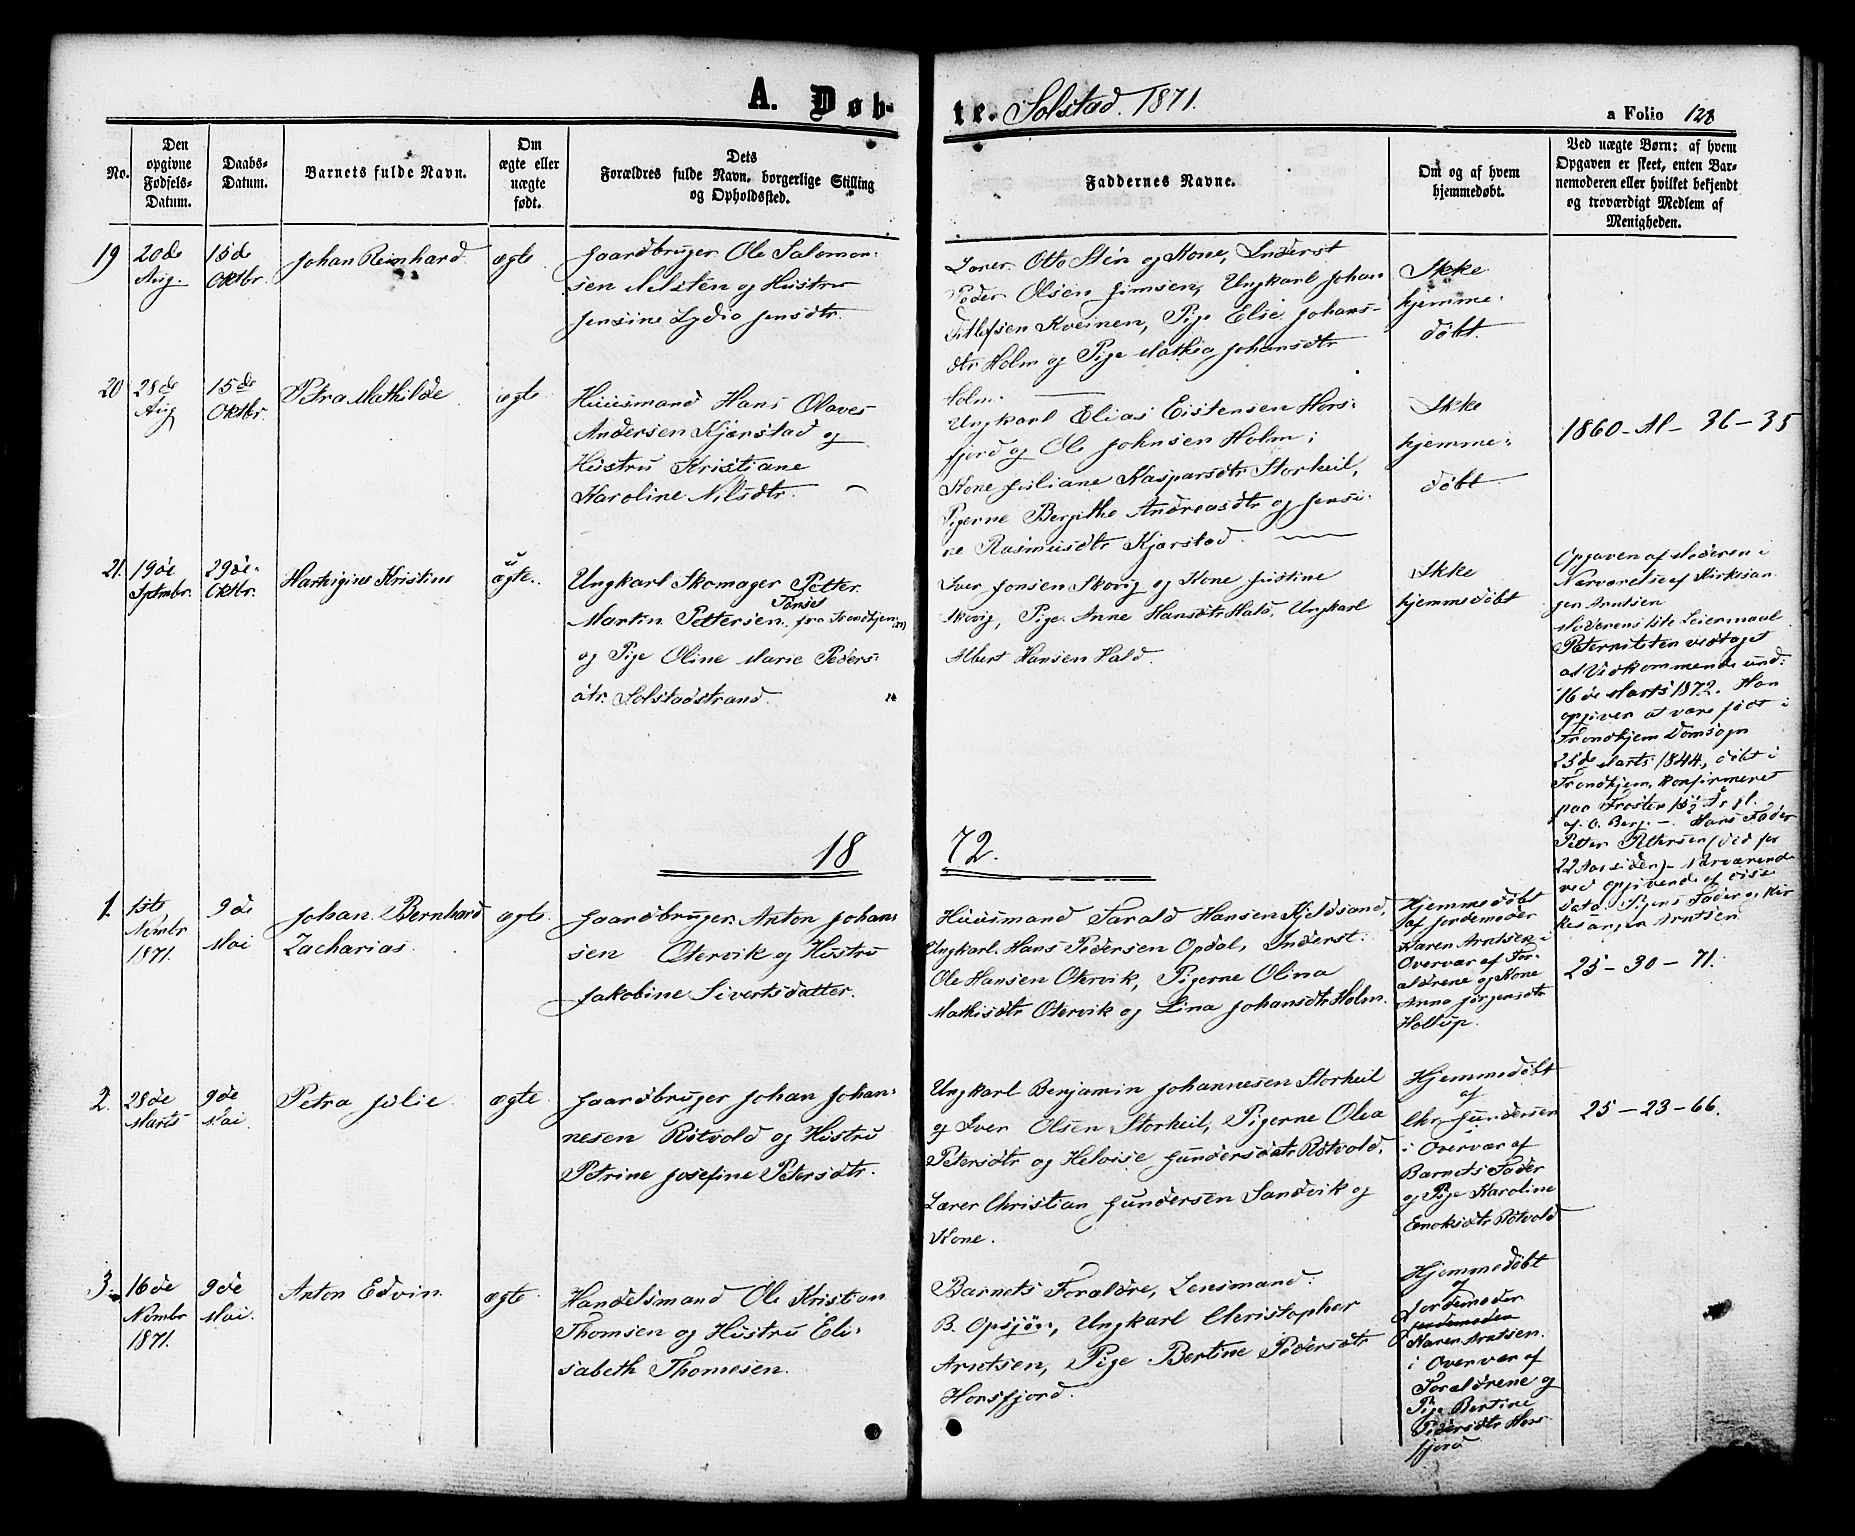 A. Døb-
te. Solstad. 1871.
a Folio 128
No.
Den
opgivne
Fødsels-
Datum.
Daabs-
Datum.
Barnets fulde Navn.
Om
ægte eller
uægte
født.
Dets
Forældres fulde Navn, borgerlige Stilling
og Opholdssted.
Faddernes Navne.
Om og af hvem
hjemmedøbt.
Ved uægte Børn: af hvem
Opgaven er skeet, enten Bar-
nemoderen eller hvilket bekjendt
og troværdigt Medlem af
Menigheden.
19
20de
Aug.
15de
Oktbr.
Johan Reinhard.
ægte.
Gaardbruger Ole Salomon-
sen Nilsten og Hustru
Jensine Lydia Jensdtr.
Lærer Otto Stén og Kone, Inderst
Peder Olsen Simsen, Ungkarl Johan
Ditlefsen Kveinen, Pige Elie Johans-
dtr Holm og Pige Mathea Johansdtr
Holm.
Ikke
hjemme-
døbt.
20
28de
Aug
15de
Oktbr.
Petra Mathilde
ægte
Huusmand Hans Olaves
Andersen Kjærstad og
Hustru Kristiane
Karoline Nilsdtr.
Ungkarl Elias Eistensen Hors-
fjord og Ole Johnsen Holm;
Kone Juliane Kaspersdtr Storheil,
Pigerne Bergithe Andreasdtr og Jensi-
ne Rasmusdtr Kjærstad.
Ikke
hjemme-
døbt
1860-M-36-35
21.
19de
Septmbr.
29de
Oktbr.
Hartvigius Kristius
u
ægte.
Ungkarl Skomager Petter
Tønset
Martin Pettersen fra Trondhjem
og Pige Oline Marie Peders-
dtr. Solstadstrand.
Iver Jonsen Skovig og Kone Justine
Skovig, Pige Anne Hansdtr Hald, Ungkarl
Albert Hansen Hald.
Ikke
hjemmedøbt
Opgaven af Moderen i
Nærværelse af Kirkesan-
gen Arntsen
Moderens 1ste Leiermaal
Paterniteten vedtaget
af Vedkommende und:
16de Marts 1872. Han
opgiver at være født i
Trondhjem Domsogn
25de Marts 1844, døbt i
Trondhjem, konfirmeret
paa Frosten
af O. Berg. - Hans Fader
Petter Pettersen (død for
22 Aar siden) - Nærværende
ved opgivende af disse
Data: Pigens Fader og Kir
kesanger Arntsen.
1872.
1.
1ste
Novbr
1871.
9de
Mai
Johan Bernhard
Zacharias.
ægte.
Gaardbruger Anton Johan-
sen Otervik og Hustru
Jakobine Sivertsdatter.
Huusmand Tarald Hansen Kjeldsand,
Ungkarl Hans Pedersen Opdal, Inderst
Ole Hansen Otervik, Pigerne Olina
Mathisdtr Otervik og Lina Johansdtr Holm.
Hjemmedøbt
af Jordemoder
Karen Arntsen i
Overvær af For-
ældrene og Kone
Anna Jørgensdtr
Holtup.
25-30-71.
2.
28de
Marts
9de
Mai.
Petra Julie.
ægte.
Gaardbruger Johan Johan-
nesen Røtvold og Hustru
Petrine Josefine Petersdtr.
Ungkarl Benjamin Johannesen Storheil
og Iver Olsen Storheil, Pigerne Olea
Petersdtr og Heloise Gundersdtr Røtvold,
Lærer Christian Gundersen Sandvik og
Kone.
Hjemmedøbt
af
Chr. Gundersen
i Overvær af
Barnets Fader
og Pige Karoline
Enoksdtr Røtvold
25-23-66.
3.
16de
Novmbr
1871.
9de
Mai.
Anton Edvin.
ægte.
Handelsmand Ole Kristian
Thomsen og Hustru Eli-
sabeth Thomesen.
Barnets Forældre, Lensmand
B. Opsjøn, Ungkarl Christopher
Arntsen, Pige Bertine Pedersdtr
Horsfjord.
Hjemmedøbt
af
Jordemoder
Karen Arntsen.
i Overvær af
Forældrene og
Pige Bertine
Pedersdtr Hors-
fjord